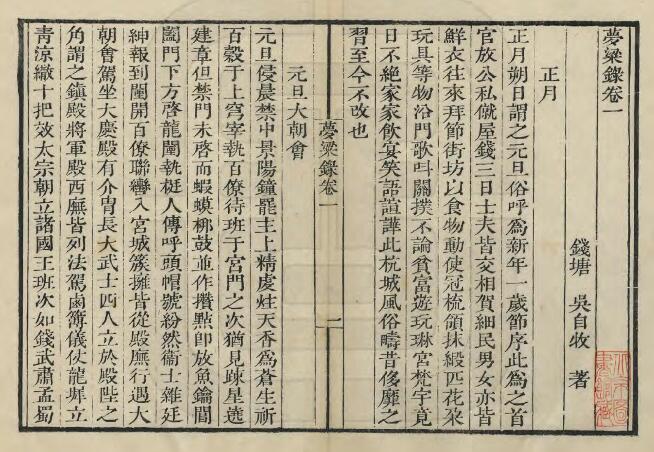 夢粱錄卷一
錢塘　吳自牧　著
正月
正月朔日謂之元旦俗呼爲新年一歲節序此爲之首
官放公私僦屋錢三日士夫皆交相賀細民男女亦皆
鮮衣往來拜節街坊以食物動使冠梳領抹緞匹花朶
玩具等物沿門歌呌關撲不論貧富遊玩琳宮梵宇竟
日不絕家家飮宴笑語諠譁此杭城風俗疇昔侈靡之
習至今不改也
夢粱錄卷一　一
元旦大朝會
元旦侵晨禁中景陽鐘罷主上精虔炷天香爲蒼生祈
百穀于上穹宰執百僚待班于宮門之次猶見疎星遶
建章但禁門未啓而蝦蟆梆鼓並作攢點卽放魚鑰閶
闔門下方啓龍闈執梃人傳呼頭帽號紛然衞士雜廷
紳報到闈開百僚聯轡入宮城簇擁皆從殿廡行遇大
朝會駕坐大慶殿有介冑長大武士四人立於殿陛之
角謂之鎭殿將軍殿西廡皆列法駕鹵簿儀仗龍墀立
靑涼繖十把效太宗朝立諸國王班次如錢武肅孟蜀